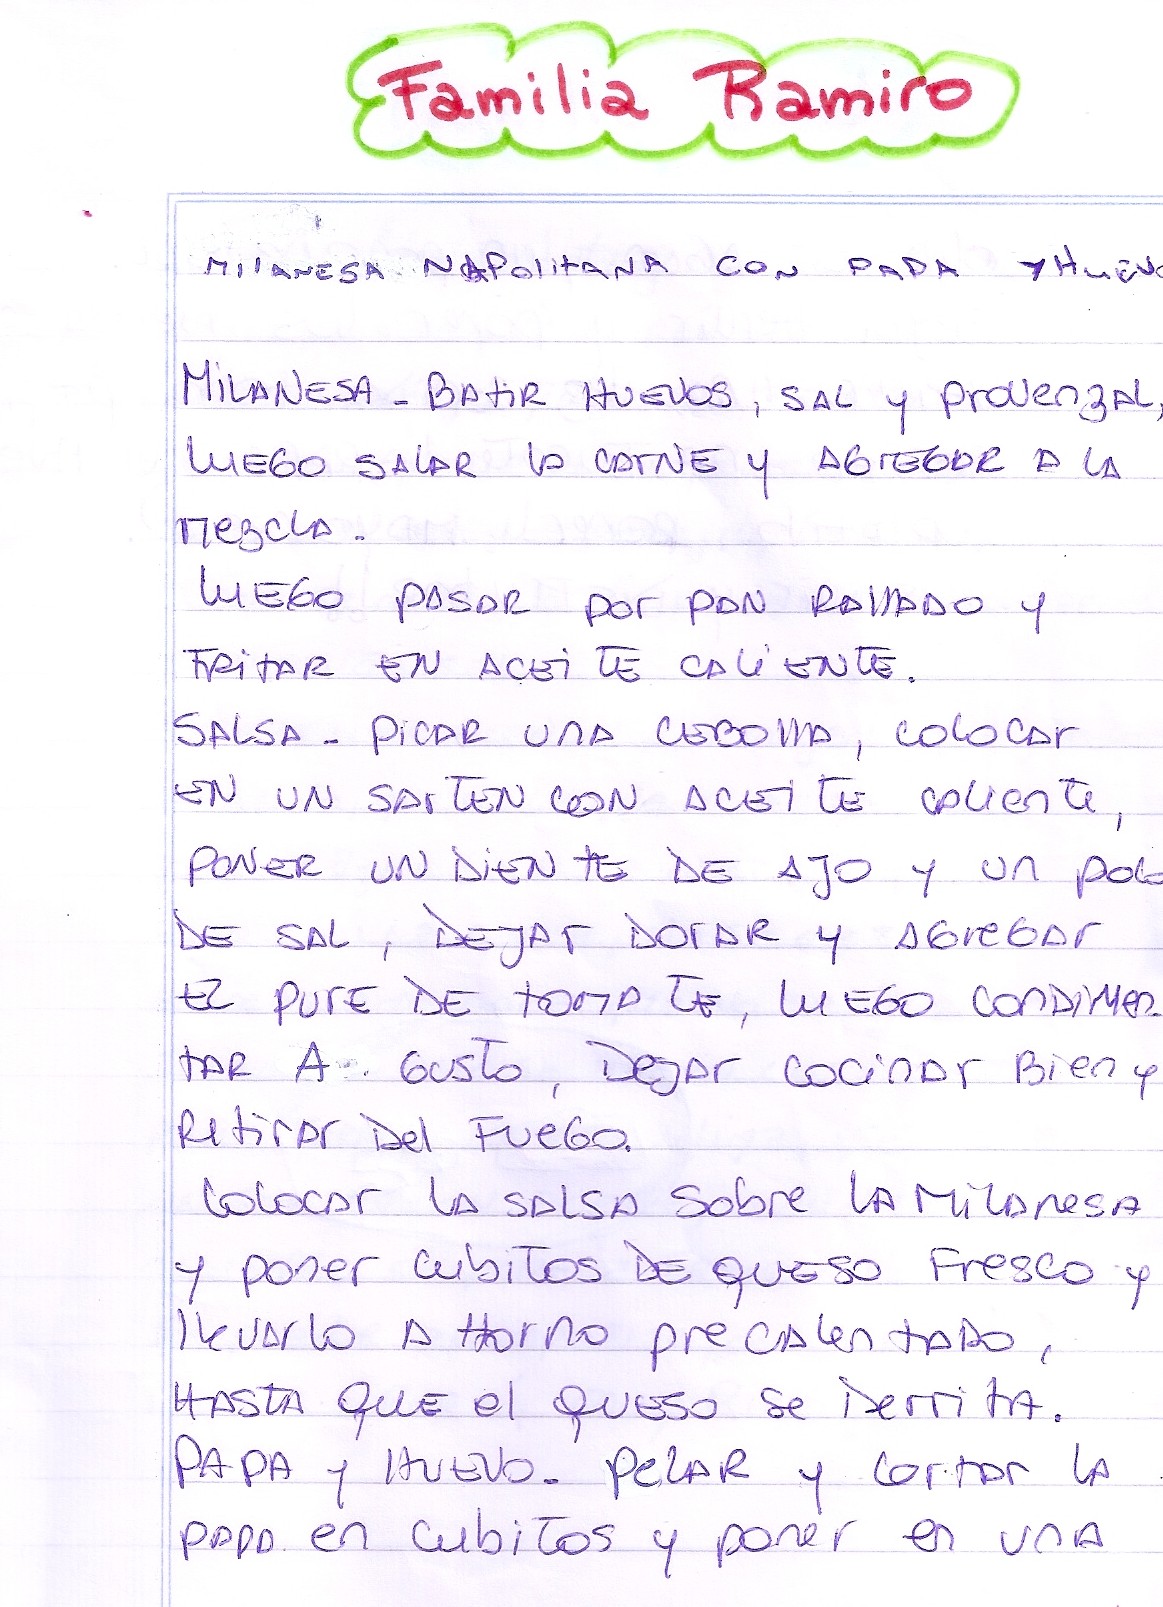 Familia Ramiro
MILANESA NAPOLITANA CON PAPA Y HUEVO
MILANESA - BATIR HUEVOS, SAL y provenzAL,
LUEGO SALAR LA CARNE y AGREGAR A LA
mezcla.
LUEGO PASAR por PAN RALLADO y
FRITAR EN ACEITE CALIENTE.
SALSA - PICAR UNA CEBOLLA, COLOCAR
EN UN SARTEN CON ACEITE caliente,
PONER UN DIENTE DE AJO y un poco
DE SAL, DEJAR DORAR y AGREGAR
EL PURE DE TOMATE, LUEGO CONDIMEN
TAR A GUSTO, DEJAR COCINAR Bien y
Retirar Del FUEGO.
COLOCAR LA SALSA Sobre LA MILANESA
y poner cubitos DE QUESO Fresco y
llevarlo A Horno preCALENTADO,
HASTA QUE el QUESO se Derrita.
PAPA y HUEVO - PELAR y cortar LA
PAPA en cubitos y poner en UNA